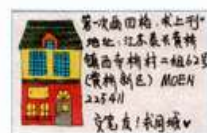 第一次画回格，求上刊~
地址：江苏泰兴黄桥
镇西寺桥村二组62号
(黄桥新邑) MOEN
225411
交笔友！求同城♥